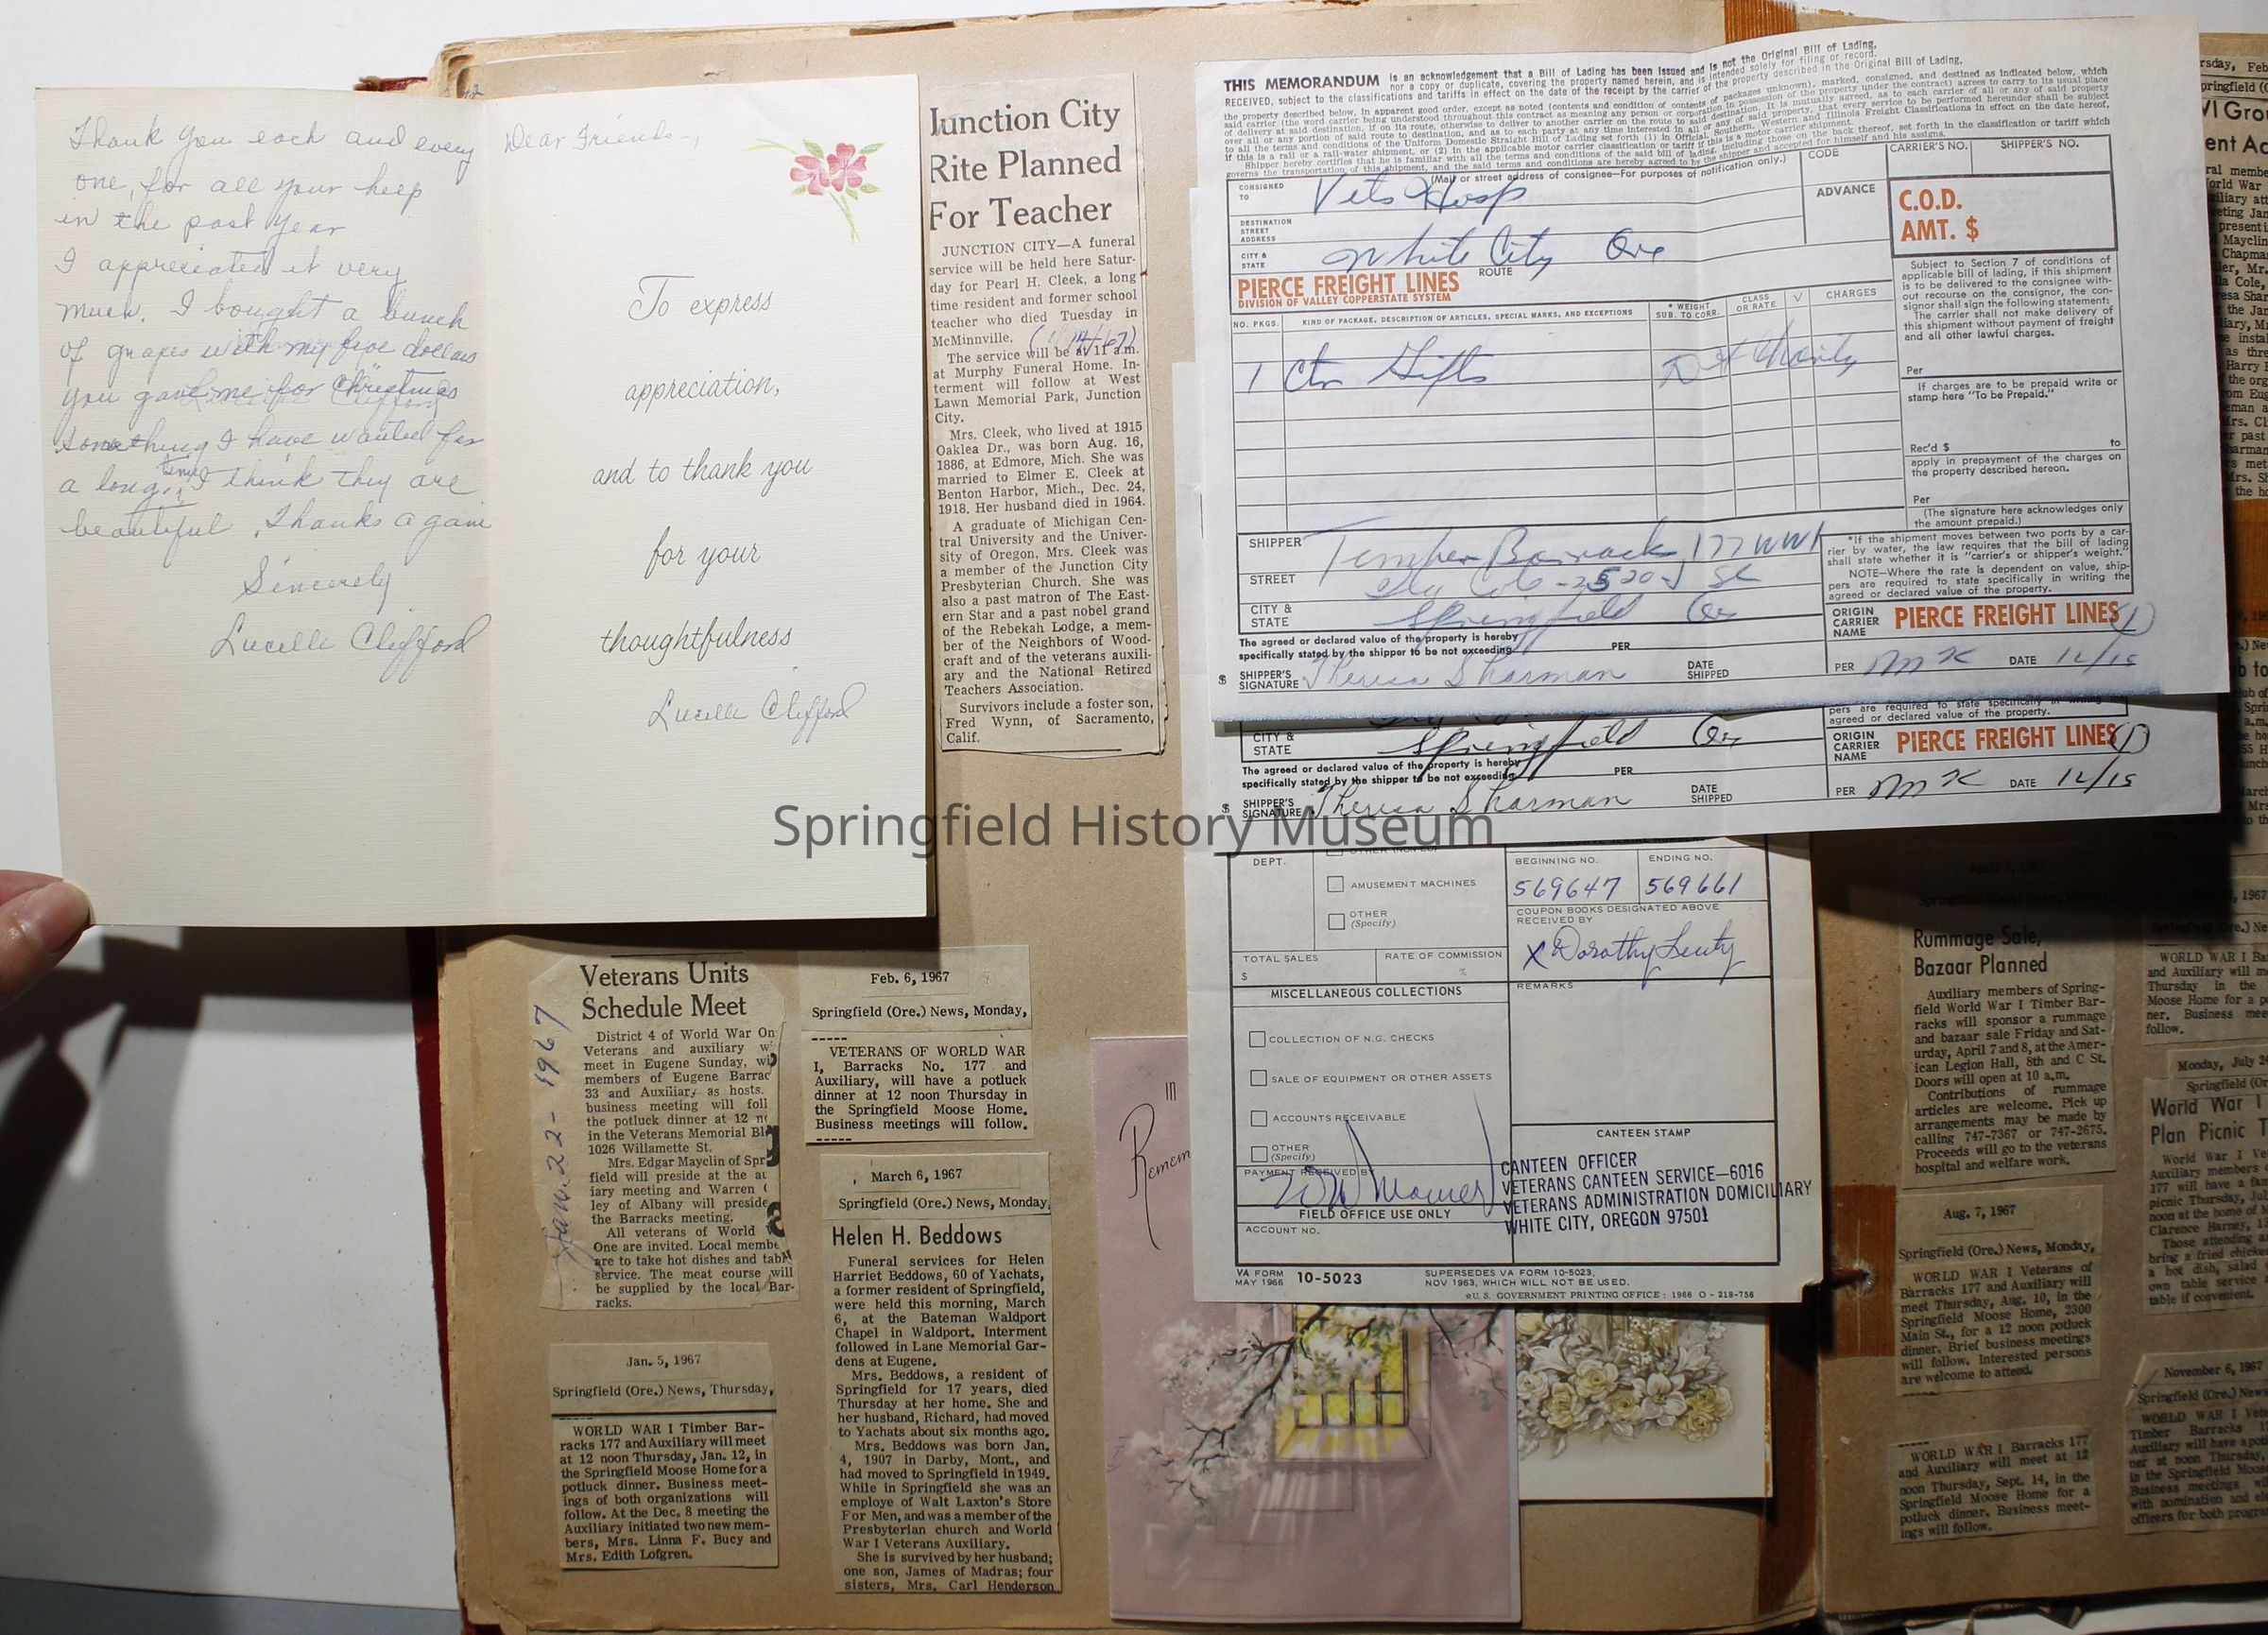 Thank you each and every
one, for all your help
in the past year
I appreciated it very
much. I bought a bunch
of grapes with my five dollars
you gave me for Christmas
something I have wanted for
a long time, I think they are
beautiful. Thanks again
Sincerely
Lucille Clifford
Dear Friends,
To express
appreciation,
and to thank you
for your
thoughtfulness
Lucille Clifford
Junction City
Rite Planned
For Teacher
JUNCTION CITY—A funeral
service will be held here Satur-
day for Pearl H. Cleek, a long
time resident and former school
teacher who died Tuesday in
McMinnville.
The service will be at 11 a.m.
at Murphy Funeral Home. In-
terment will follow at West
Lawn Memorial Park, Junction
City.
Mrs. Cleek, who lived at 1915
Oaklea Dr., was born Aug. 16,
1886, at Edmore, Mich. She was
married to Elmer E. Cleek at
Benton Harbor, Mich., Dec. 24,
1918. Her husband died in 1964.
A graduate of Michigan Cen-
tral University and the Univer-
sity of Oregon, Mrs. Cleek was
a member of the Junction City
Presbyterian Church. She was
also a past matron of The East-
ern Star and a past nobel grand
of the Rebekah Lodge, a mem-
ber of the Neighbors of Wood-
craft and of the veterans auxili-
ary and the National Retired
Teachers Association.
Survivors include a foster son,
Fred Wynn, of Sacramento,
Calif.
THIS MEMORANDUM is an acknowledgement that a Bill of Lading has been issued and is not the Original Bill of Lading,
nor a copy or duplicate, covering the property named herein, and is intended solely for filing or record.
RECEIVED, subject to the classifications and tariffs in effect on the date of the receipt by the carrier of the property described in the Original Bill of Lading,
(Mail or street address of consignee—For purposes of notification only.)
CODE
CARRIER'S NO.
SHIPPER'S NO.
CONSIGNED TO Vets Hosp
ADVANCE
C.O.D.
AMT. $
DESTINATION STREET ADDRESS
CITY & STATE White City Ore
PIERCE FREIGHT LINES ROUTE
DIVISION OF VALLEY COPPERSTATE SYSTEM
NO. PKGS.
KIND OF PACKAGE, DESCRIPTION OF ARTICLES, SPECIAL MARKS, AND EXCEPTIONS
* WEIGHT SUB. TO CORR.
CLASS OR RATE
CHARGES
1 Ctn Gifts
Charity
Subject to Section 7 of conditions of
applicable bill of lading, if this shipment
is to be delivered to the consignee with-
out recourse on the consignor, the con-
signor shall sign the following statement:
The carrier shall not make delivery of
this shipment without payment of freight
and all other lawful charges.
Per
If charges are to be prepaid write or
stamp here "To be Prepaid."
Rec'd $ to
apply in prepayment of the charges on
the property described hereon.
Per
(The signature here acknowledges only
the amount prepaid.)
SHIPPER Timber Barrack 177 WWI
STREET 2520 J St
CITY & STATE Springfield Or
*If the shipment moves between two ports by a car-
rier by water, the law requires that the bill of lading
shall state whether it is "carrier's or shipper's weight."
NOTE—Where the rate is dependent on value, ship-
pers are required to state specifically in writing the
agreed or declared value of the property.
The agreed or declared value of the property is hereby
specifically stated by the shipper to be not exceeding PER
ORIGIN CARRIER NAME PIERCE FREIGHT LINES
$ SHIPPER'S SIGNATURE Theresa Sharman DATE SHIPPED
PER MK DATE 12/15
pers are required to state specifically in writing the
agreed or declared value of the property.
CITY & STATE Springfield Or
ORIGIN CARRIER NAME PIERCE FREIGHT LINES
The agreed or declared value of the property is hereby
specifically stated by the shipper to be not exceeding PER
$ SHIPPER'S SIGNATURE Theresa Sharman DATE SHIPPED
PER MK DATE 12/15
Springfield History Museum
DEPT.
AMUSEMENT MACHINES
OTHER (Specify)
BEGINNING NO.
569647
ENDING NO.
569661
COUPON BOOKS DESIGNATED ABOVE
RECEIVED BY
x Dorothy Lenty
TOTAL SALES
$
RATE OF COMMISSION
%
REMARKS
MISCELLANEOUS COLLECTIONS
COLLECTION OF N.G. CHECKS
SALE OF EQUIPMENT OR OTHER ASSETS
ACCOUNTS RECEIVABLE
OTHER (Specify)
PAYMENT RECEIVED BY
FIELD OFFICE USE ONLY
ACCOUNT NO.
CANTEEN STAMP
CANTEEN OFFICER
VETERANS CANTEEN SERVICE—6016
VETERANS ADMINISTRATION DOMICILIARY
WHITE CITY, OREGON 97501
VA FORM
MAY 1966 10-5023
SUPERSEDES VA FORM 10-5023,
NOV 1963, WHICH WILL NOT BE USED.
U.S. GOVERNMENT PRINTING OFFICE: 1966 O - 218-756
In
Remem
Jan. 22 - 1967
Veterans Units
Schedule Meet
District 4 of World War On
Veterans and auxiliary w
meet in Eugene Sunday, wi
members of Eugene Barrac
33 and Auxiliary as hosts.
business meeting will foll
the potluck dinner at 12 n
in the Veterans Memorial Bl
1026 Willamette St.
Mrs. Edgar Mayclin of Spr
field will preside at the au
iary meeting and Warren
ley of Albany will preside
the Barracks meeting.
All veterans of World
One are invited. Local membe
are to take hot dishes and tabl
service. The meat course will
be supplied by the local Bar-
racks.
Jan. 5, 1967
Springfield (Ore.) News, Thursday,
WORLD WAR I Timber Bar-
racks 177 and Auxiliary will meet
at 12 noon Thursday, Jan. 12, in
the Springfield Moose Home for a
potluck dinner. Business meet-
ings of both organizations will
follow. At the Dec. 8 meeting the
Auxiliary initiated two new mem-
bers, Mrs. Linna F. Bucy and
Mrs. Edith Lofgren.
Feb. 6, 1967
Springfield (Ore.) News, Monday,
VETERANS OF WORLD WAR
I, Barracks No. 177 and
Auxiliary, will have a potluck
dinner at 12 noon Thursday in
the Springfield Moose Home.
Business meetings will follow.
March 6, 1967
Springfield (Ore.) News, Monday,
Helen H. Beddows
Funeral services for Helen
Harriet Beddows, 60 of Yachats,
a former resident of Springfield,
were held this morning, March
6, at the Bateman Waldport
Chapel in Waldport. Interment
followed in Lane Memorial Gar-
dens at Eugene.
Mrs. Beddows, a resident of
Springfield for 17 years, died
Thursday at her home. She and
her husband, Richard, had moved
to Yachats about six months ago.
Mrs. Beddows was born Jan.
4, 1907 in Darby, Mont., and
had moved to Springfield in 1949.
While in Springfield she was an
employe of Walt Laxton's Store
For Men, and was a member of the
Presbyterian church and World
War I Veterans Auxiliary.
She is survived by her husband;
one son, James of Madras; four
sisters, Mrs. Carl Henderson
Rummage Sale,
Bazaar Planned
Auxiliary members of Spring-
field World War I Timber Bar-
racks will sponsor a rummage
and bazaar sale Friday and Sat-
urday, April 7 and 8, at the Amer-
ican Legion Hall, 8th and C St.
Doors will open at 10 a.m.
Contributions of rummage
articles are welcome. Pick up
arrangements may be made by
calling 747-7367 or 747-2675.
Proceeds will go to the veterans
hospital and welfare work.
Aug. 7, 1967
Springfield (Ore.) News, Monday,
WORLD WAR I Veterans of
Barracks 177 and Auxiliary will
meet Thursday, Aug. 10, in the
Springfield Moose Home, 2300
Main St., for a 12 noon potluck
dinner. Brief business meetings
will follow. Interested persons
are welcome to attend.
WORLD WAR I Barracks 177
and Auxiliary will meet at 12
noon Thursday, Sept. 14, in the
Springfield Moose Home for a
potluck dinner. Business meet-
ings will follow.
WORLD WAR I Ba
and Auxiliary will m
Thursday in the
Moose Home for a p
ner. Business mee
follow.
Monday, July 24
Springfield (Or
World War I
Plan Picnic T
World War I Ve
Auxiliary members
177 will have a fam
picnic Thursday, Jul
noon at the home of M
Clarence Harney,
Those attending a
bring a fried chicke
a hot dish, salad
own table service
table if convenient.
November 6, 1967
Springfield (Ore.) News
WORLD WAR I Vete
Timber Barracks 17
Auxiliary will have a pot
ner at noon Thursday,
in the Springfield Moose
Business meetings wil
with nomination and el
officers for both progra